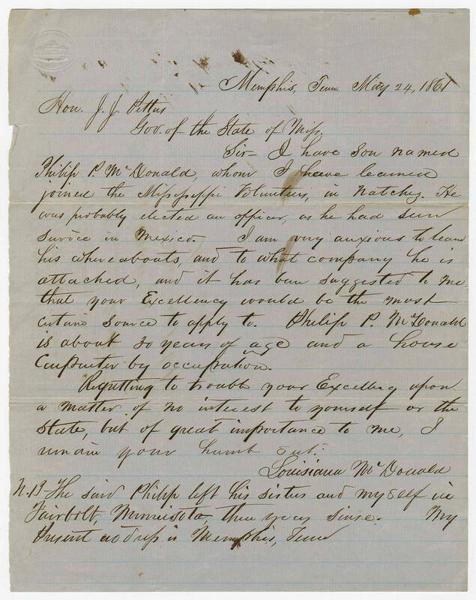 Memphis, Tenn May 24, 1861
Hon. J. J. Pettus
Gov. of the State of Miss,
Sir- I have son named
Philip P. McDonald, whom I have learned
joined the Mississippi Volunteers, in Natchez. He
was probably elected an officer, as he had seen
service in Mexico. I am very anxious to learn
his whereabouts, and to what company he is
attached, and it has been suggested to me
that your Excellency would be the most
certain source to apply to. Philip P. McDonald
is about 30 years of age and a house
Carpenter by occupation.
Regretting to trouble your Excellency upon
a matter of no interest to yourself or the
State, but of great importance to me, I
remain your humb
Louisiana McDonald
N.B The said Philip left his sisters and myself in
Fairbolt, Minnisota, three years since. My
present address is Memphis, Tenn